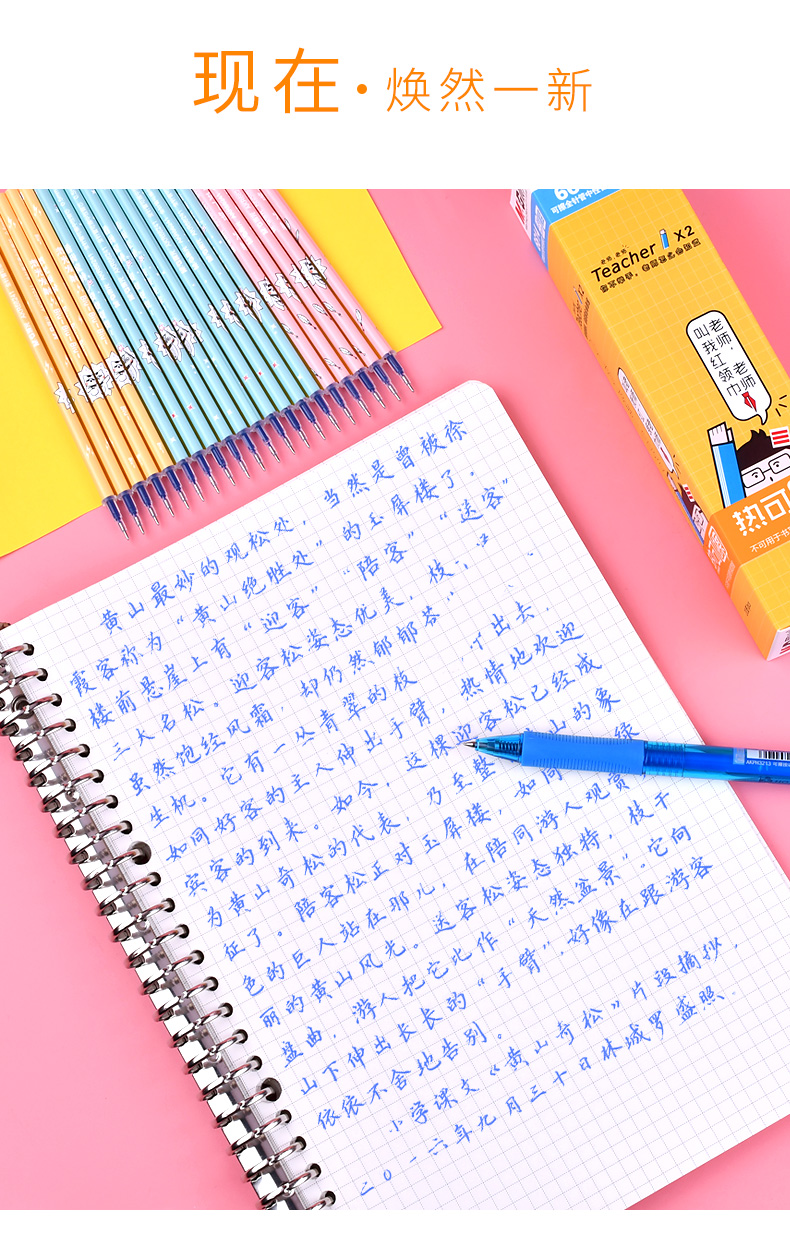 现在·焕然一新
Teacher X2
老师，老师
叫我红领巾
热可
不可用于书
AKPR3213
黄山最妙的观松处，当然是曾被徐
霞客称为“黄山绝胜处”的玉屏楼了。
楼前悬崖上有“迎客”“陪客”“送客”
三大名松。迎客松姿态优美，枝
虽然饱经风霜，却仍然郁郁苍
生机。它有一丛青翠的枝 出去，
如同好客的主人伸出手臂，热情地欢迎
宾客的到来。如今，这棵迎客松已经成
为黄山奇松的代表，乃至整 山的象
征了。陪客松正对玉屏楼，如同 绿
色的巨人站在那儿，在陪同游人观赏
丽的黄山风光。送客松姿态独特，枝干
盘曲，游人把它比作“天然盆景”。它向
山下伸出长长的“手臂”，好像在跟游客
依依不舍地告别。
小学课文《黄山奇松》片段摘抄，
二〇一六年九月三十日林城罗盛照.